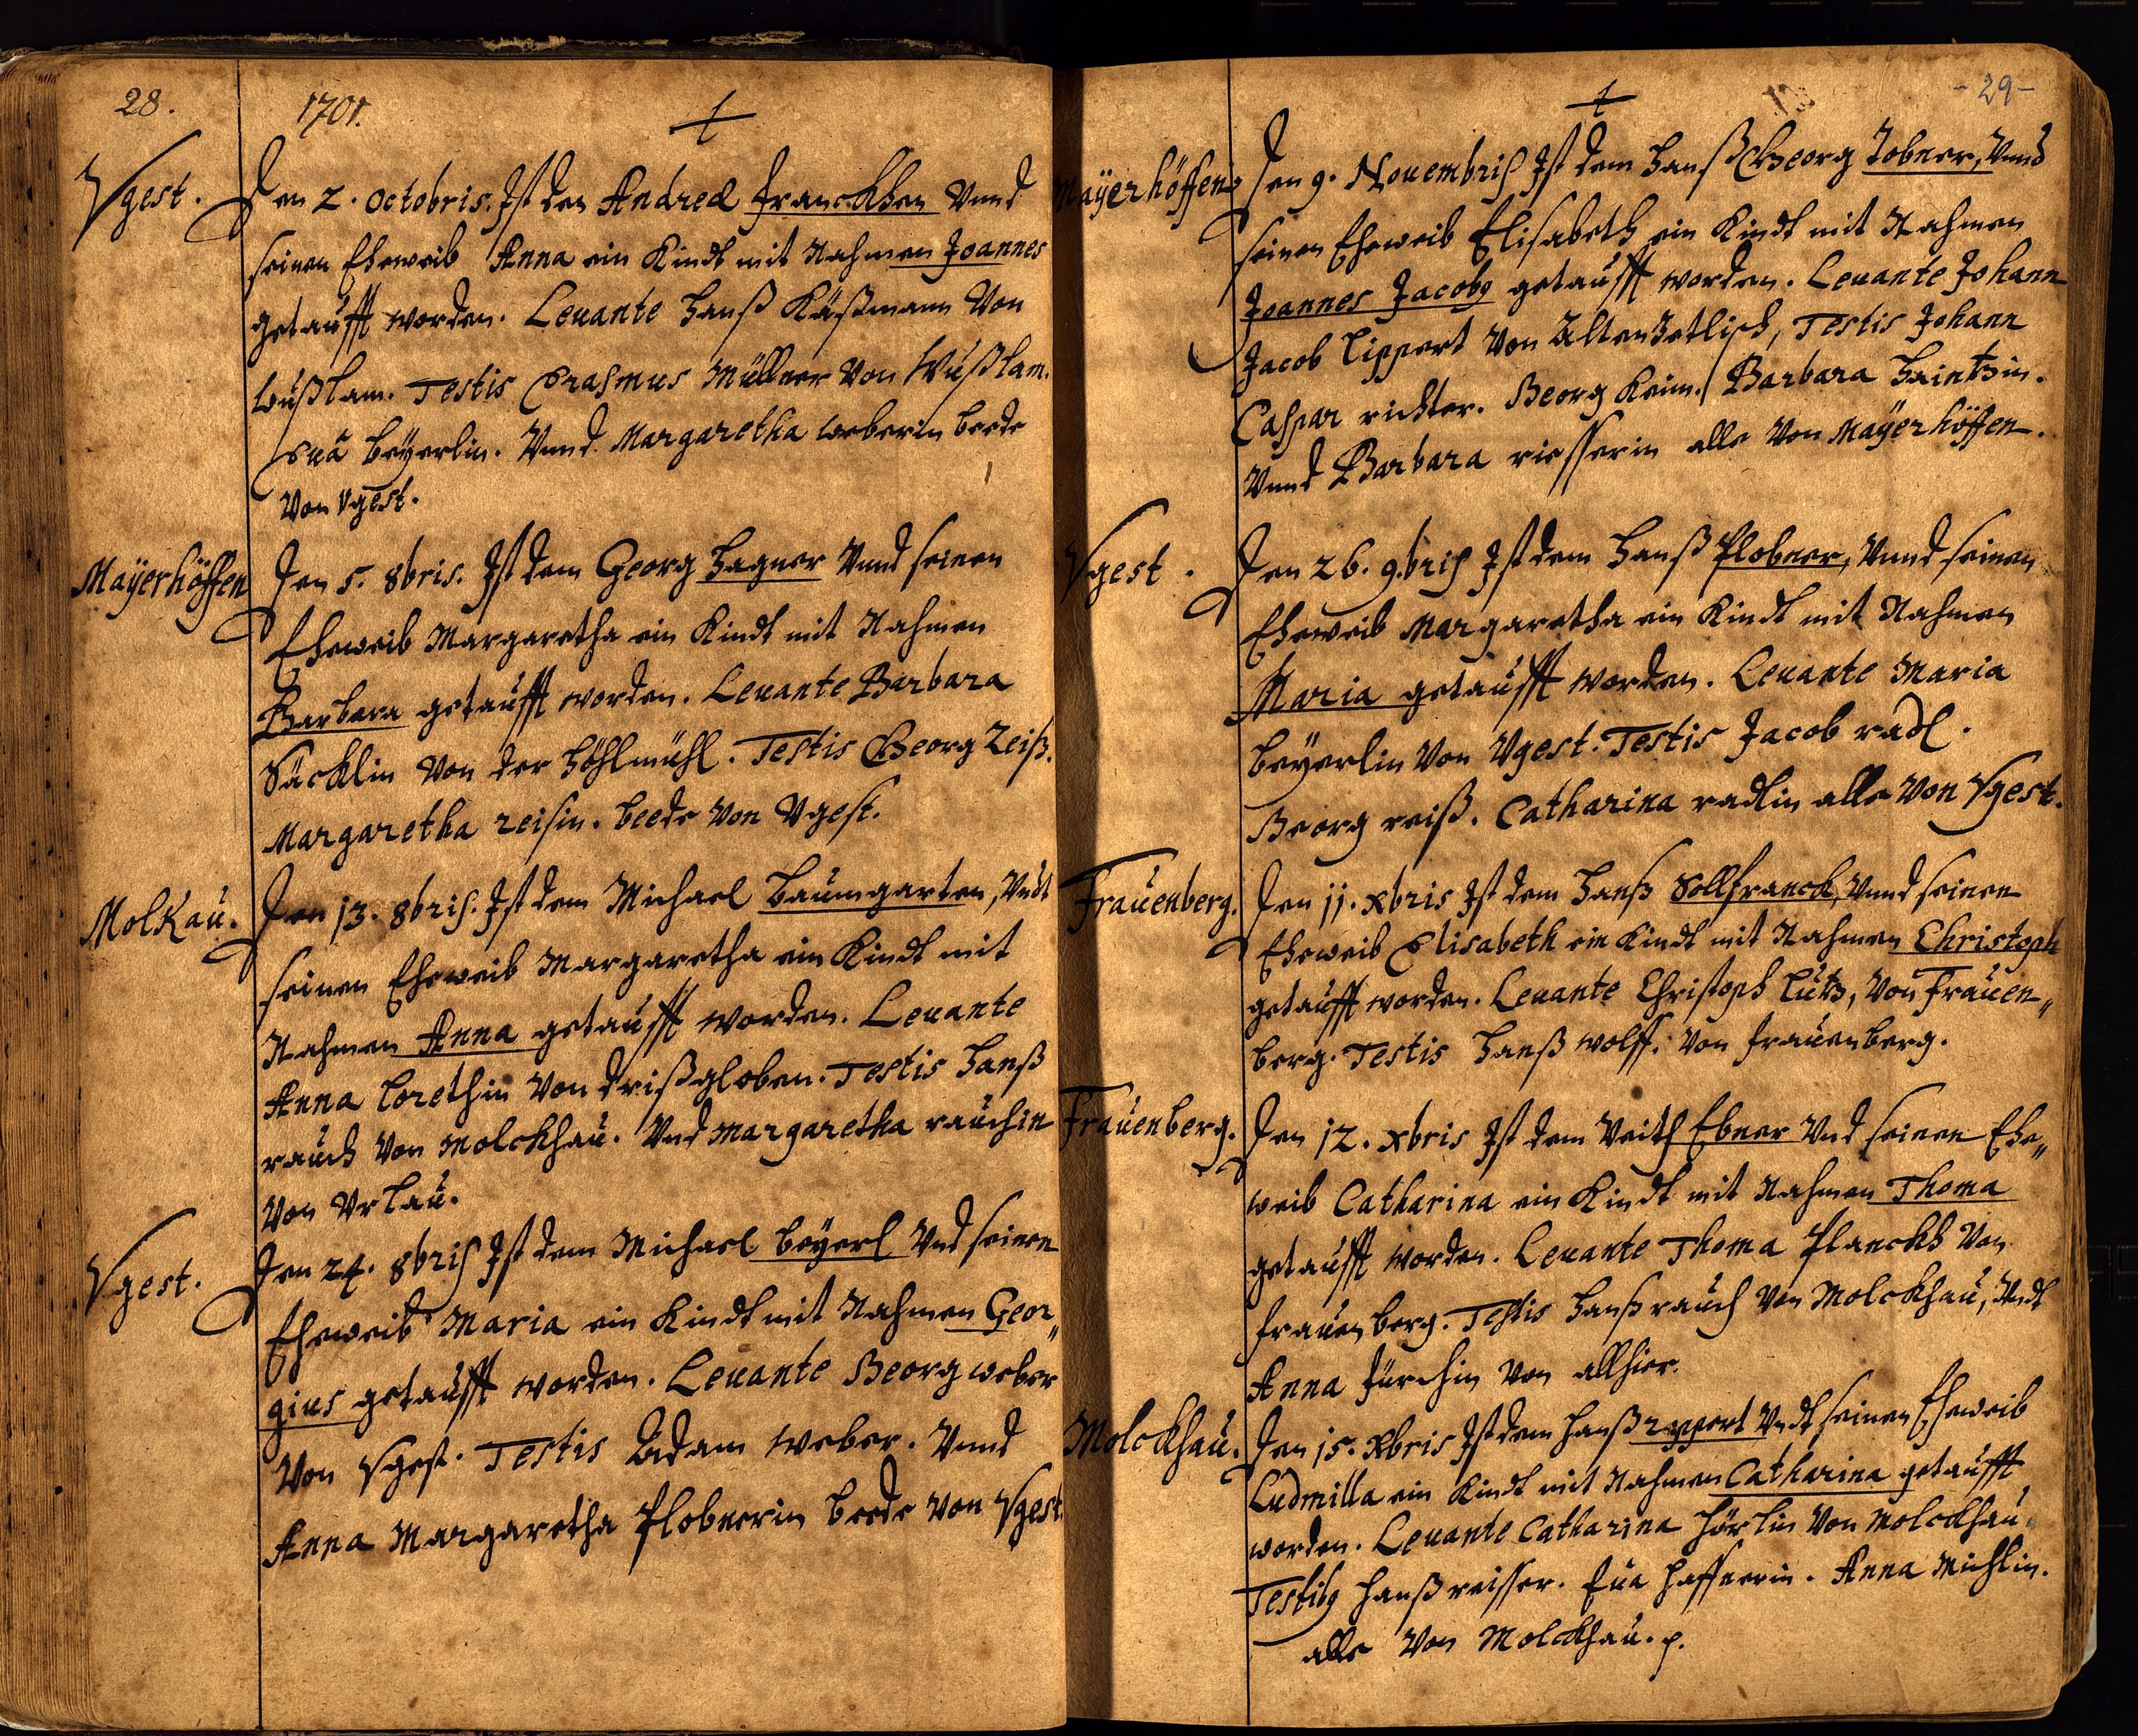 28.
1701.
Vgest.
Den 2. Octobris. Ist den Andreæ Franckhen Vnnd
seinen Eheweib Anna ein Kindt mit Nahmen Joannes
getaufft worden. Leuante Hanß Käßmann Von
Wußlam. Testis Erasmus Müllner Von Wußlam.
Eua Beÿerlin. Vnnd Margaretha Weberin beede
Von Vgest.
Maÿerhöffen
Den 5. 8bris. Ist dem Georg Hagner Vnnd seinen
Eheweib Margaretha ein Kindt mit Nahmen
Barbara getaufft worden. Leuante Barbara
Säcklin Von der Höhlmühl. Testis Georg Reiß.
Margaretha reisin. beede Von Vgest.
Molkau.
Den 13. 8bris. Ist dem Michael Baumgarten, Vndt
seinen Eheweib Margaretha ein Kindt mit
Nahmen Anna getaufft worden. Leuante
Anna Lorethin Von Drißgloben. Testis Hanß
rauch Von Molckhau. Vnd Margaretha rauchin
Von Urlau.
Vgest.
Den 24. 8bris Ist dem Michael Beÿerl Vnd seinen
Eheweib Maria ein Kindt mit Nahmen Geor„
gius getaufft worden. Leuante Georg weber
Von Vgest. Testis Adam Weber. Vnnd
Anna Margaretha Plobnerin beede Von Vgest.
-29-
Maÿerhöffen
Den 9. Nouembris Ist dem Hanß Georg Tobner, Vnnd
seinen Eheweib Elisabeth ein Kindt mit Nahmen
Joannes Jacobg getaufft worden. Leuante Johann
Jacob Lippert Von Altenzetlisch, Testis Johann
Caspar richter. Georg Keim. Barbara Haintzin.
Vnnd Barbara riesserin alle Von Maÿerhöffen.
Vgest.
Den 26. 9.bris Ist dem Hanß Plobner, Vnnd seinen
Eheweib Margaretha ein Kindt mit Nahmen
Maria getaufft worden. Leuante Maria
Beÿerlin Von Vgest. Testis Jacob radl.
Georg reiß. Catharina radlin alle Von Vgest.
Frauenberg.
Den 11. xbris Ist dem Hanß Sollfranck, Vnnd seinen
Eheweib Elisabeth ein Kindt mit Nahmen Christoph
getaufft worden. Leuante Christoph Lutz, Von Frauen„
berg. Testis Hanß Wolff. Von Frauenberg.
Frauenberg.
Den 12. xbris Ist dem Veith Ebner Vnd seinen Ehe„
weib Catharina ein Kindt mit Nahmen Thoma
getaufft worden. Leuante Thoma Planckh Von
Frauenberg. Testis Hanß rauch Von Molckhau, Vndt
Anna Fürchin Von allhier.
Molckhau.
Den 15. Xbris Ist dem Hanß rippert Vndt seinen Eheweib
Ludmilla ein Kindt mit Nahmen Catharina getaufft
worden. Leuante Catharina Hörlin Von Molckhau.
Testibg Hanß reisser. Eua Haffnerin. Anna Michlin.
alle Von Molckhau. p.